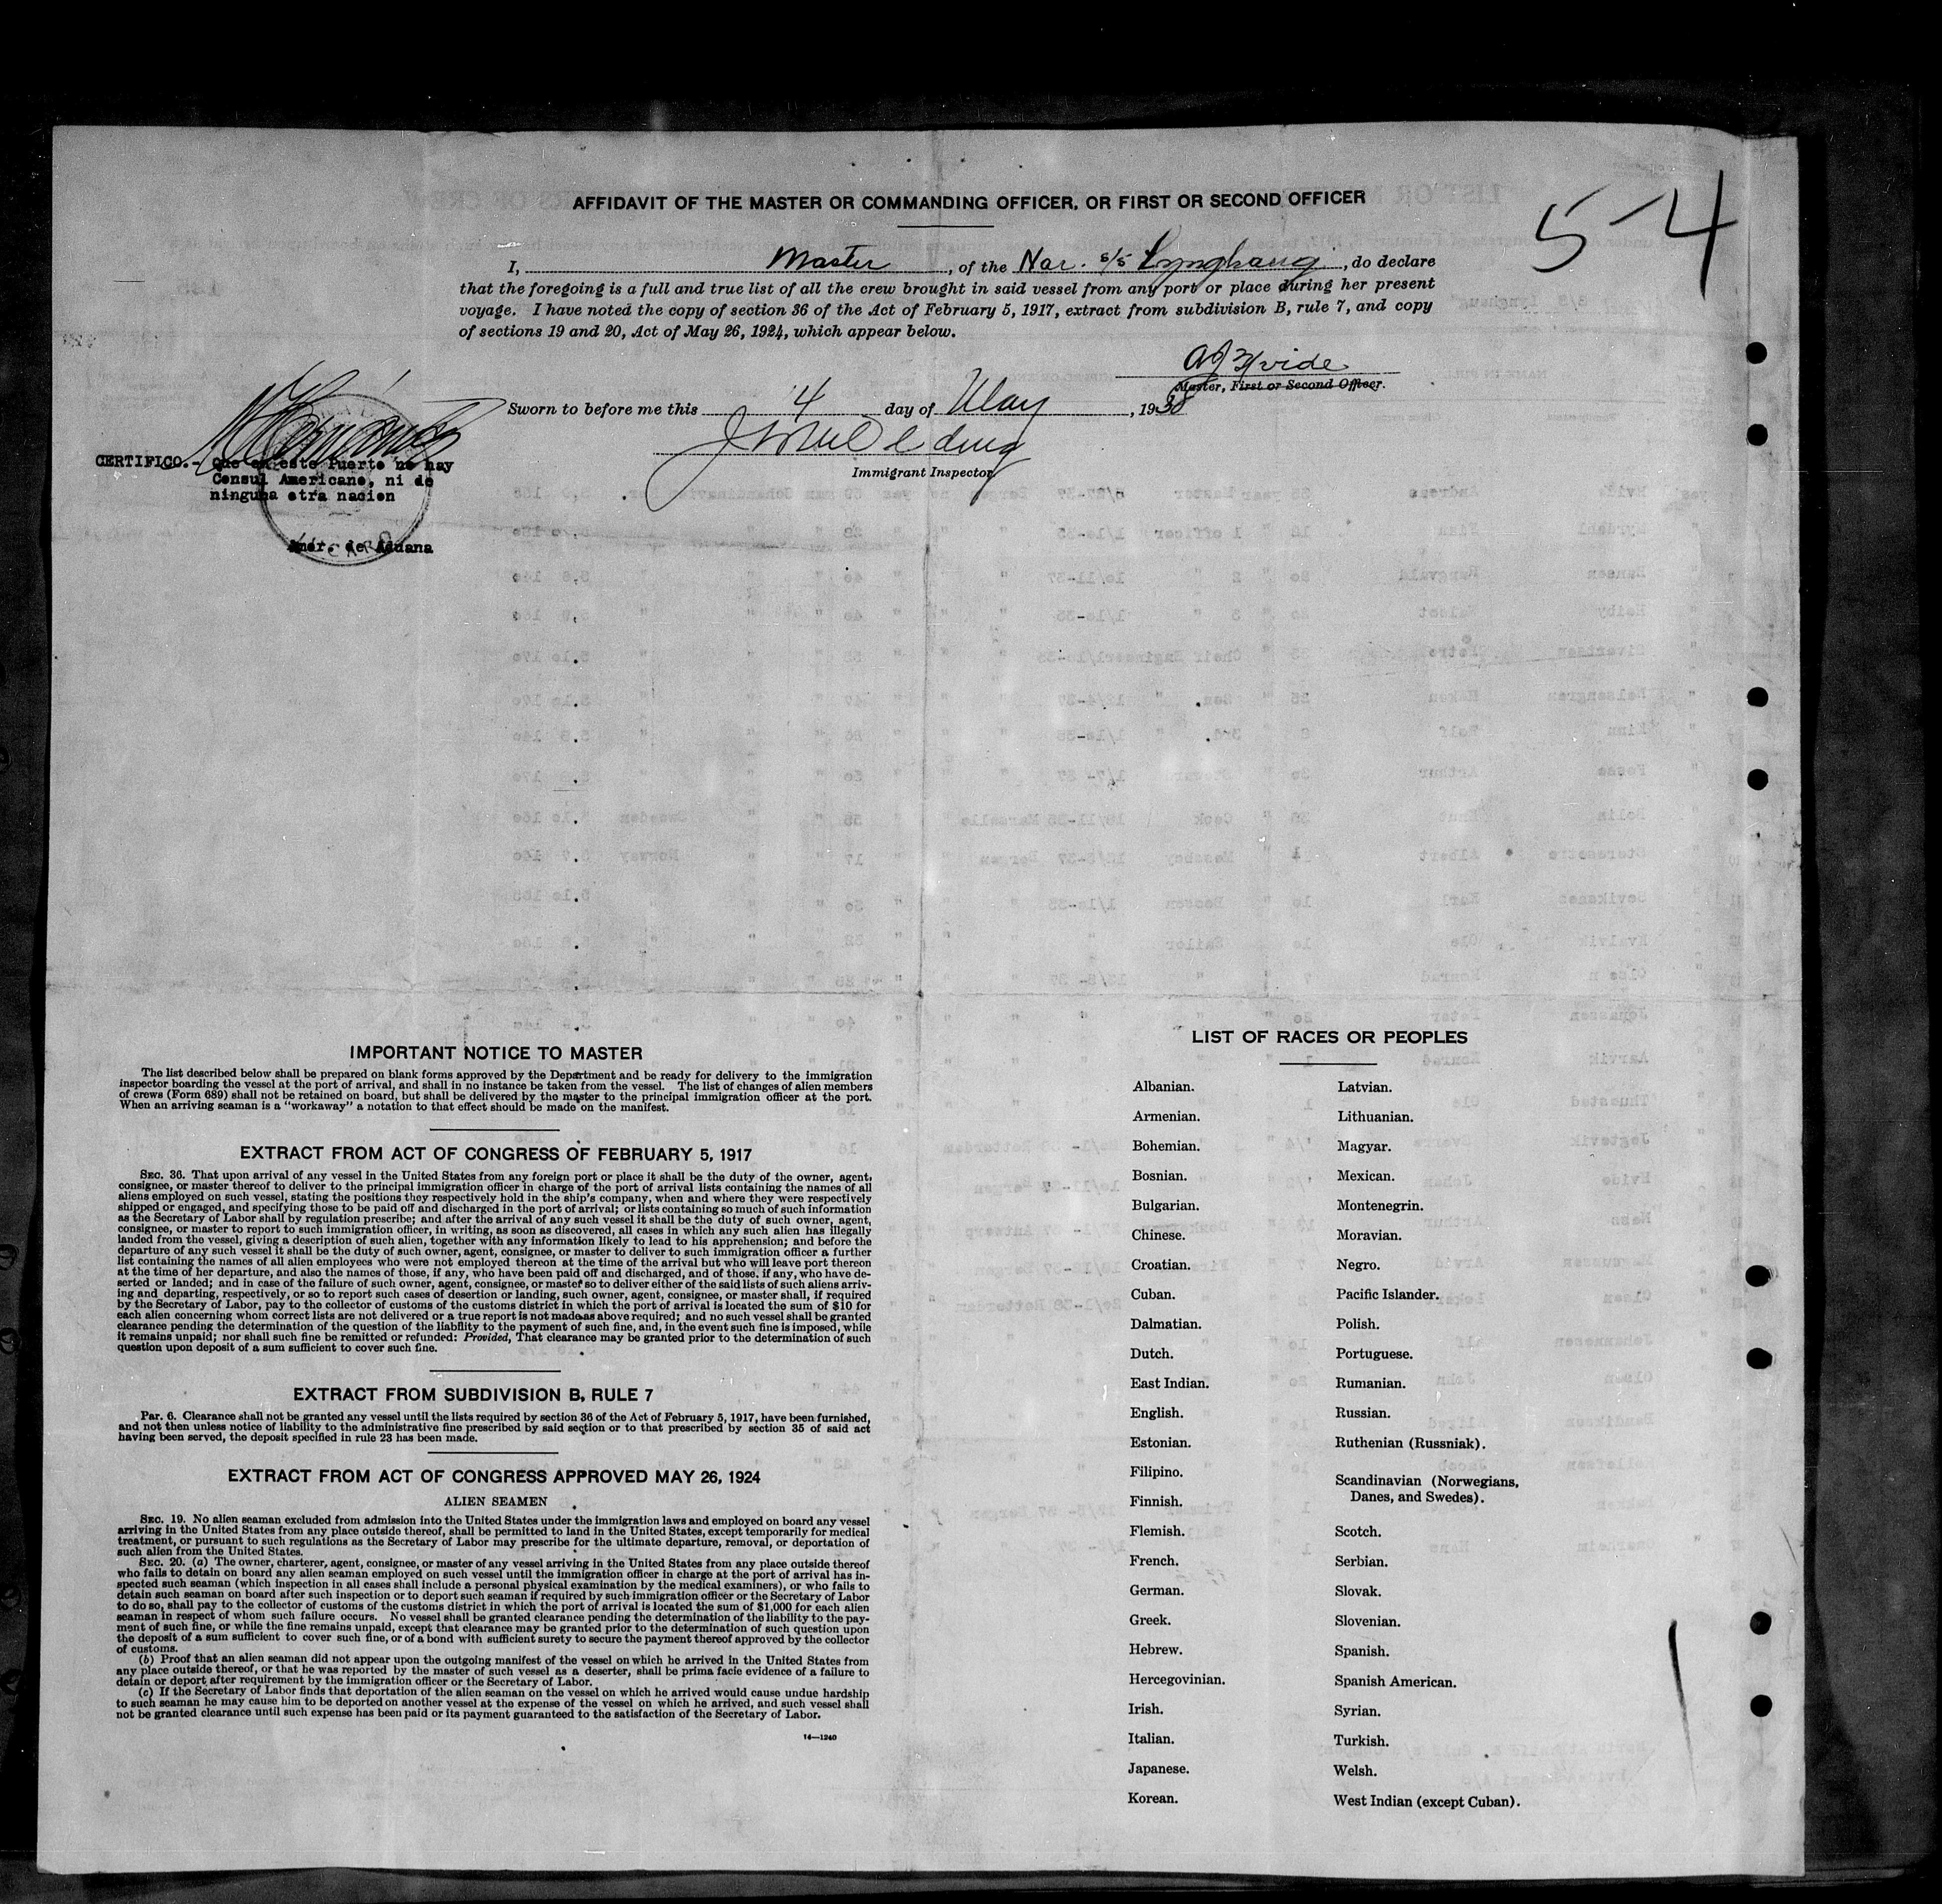 AFFIDAVIT OF THE MASTER OR COMMANDING OFFICER, OR FIRST OR SECOND OFFICER
5-4
I, Master, of the Nor. s/s Lynghaug, do declare
that the foregoing is a full and true list of all the crew brought in said vessel from any port or place during her present
voyage. I have noted the copy of section 36 of the Act of February 5, 1917, extract from subdivision B, rule 7, and copy
of sections 19 and 20, Act of May 26, 1924, which appear below.
Hvide
Master, First or Second Officer.
Sworn to before me this 4 day of May, 1938
Immigrant Inspector
CERTIFICO.- Que en este Puerto no hay
Consul Americano, ni de
ninguna otra nacion
Amor. de Aduana
IMPORTANT NOTICE TO MASTER
The list described below shall be prepared on blank forms approved by the Department and be ready for delivery to the immigration
inspector boarding the vessel at the port of arrival, and shall in no instance be taken from the vessel. The list of changes of alien members
of crews (Form 689) shall not be retained on board, but shall be delivered by the master to the principal immigration officer at the port.
When an arriving seaman is a "workaway" a notation to that effect should be made on the manifest.
EXTRACT FROM ACT OF CONGRESS OF FEBRUARY 5, 1917
SEC. 36. That upon arrival of any vessel in the United States from any foreign port or place it shall be the duty of the owner, agent,
consignee, or master thereof to deliver to the principal immigration officer in charge of the port of arrival lists containing the names of all
aliens employed on such vessel, stating the positions they respectively hold in the ship's company, when and where they were respectively
shipped or engaged, and specifying those to be paid off and discharged in the port of arrival; or lists containing so much of such information
as the Secretary of Labor shall by regulation prescribe; and after the arrival of any such vessel it shall be the duty of such owner, agent,
consignee, or master to report to such immigration officer, in writing, as soon as discovered, all cases in which any such alien has illegally
landed from the vessel, giving a description of such alien, together with any information likely to lead to his apprehension; and before the
departure of any such vessel it shall be the duty of such owner, agent, consignee, or master to deliver to such immigration officer a further
list containing the names of all alien employees who were not employed thereon at the time of the arrival but who will leave port thereon
at the time of her departure, and also the names of those, if any, who have been paid off and discharged, and of those, if any, who have de-
serted or landed; and in case of the failure of such owner, agent, consignee, or master so to deliver either of the said lists of such aliens arriv-
ing and departing, respectively, or so to report such cases of desertion or landing, such owner, agent, consignee, or master shall, if required
by the Secretary of Labor, pay to the collector of customs of the customs district in which the port of arrival is located the sum of $10 for
each alien concerning whom correct lists are not delivered or a true report is not made as above required; and no such vessel shall be granted
clearance pending the determination of the question of the liability to the payment of such fine, and, in the event such fine is imposed, while
it remains unpaid; nor shall such fine be remitted or refunded: Provided, That clearance may be granted prior to the determination of such
question upon deposit of a sum sufficient to cover such fine.
EXTRACT FROM SUBDIVISION B, RULE 7
Par. 6. Clearance shall not be granted any vessel until the lists required by section 36 of the Act of February 5, 1917, have been furnished,
and not then unless notice of liability to the administrative fine prescribed by said section or to that prescribed by section 35 of said act
having been served, the deposit specified in rule 23 has been made.
EXTRACT FROM ACT OF CONGRESS APPROVED MAY 26, 1924
ALIEN SEAMEN
SEC. 19. No alien seaman excluded from admission into the United States under the immigration laws and employed on board any vessel
arriving in the United States from any place outside thereof, shall be permitted to land in the United States, except temporarily for medical
treatment, or pursuant to such regulations as the Secretary of Labor may prescribe for the ultimate departure, removal, or deportation of
such alien from the United States.
SEC. 20. (a) The owner, charterer, agent, consignee, or master of any vessel arriving in the United States from any place outside thereof
who fails to detain on board any alien seaman employed on such vessel until the immigration officer in charge at the port of arrival has in-
spected such seaman (which inspection in all cases shall include a personal physical examination by the medical examiners), or who fails to
detain such seaman on board after such inspection or to deport such seaman if required by such immigration officer or the Secretary of Labor
to do so, shall pay to the collector of customs of the customs district in which the port of arrival is located the sum of $1,000 for each alien
seaman in respect of whom such failure occurs. No vessel shall be granted clearance pending the determination of the liability to the pay-
ment of such fine, or while the fine remains unpaid, except that clearance may be granted prior to the determination of such question upon
the deposit of a sum sufficient to cover such fine, or of a bond with sufficient surety to secure the payment thereof approved by the collector
of customs.
(b) Proof that an alien seaman did not appear upon the outgoing manifest of the vessel on which he arrived in the United States from
any place outside thereof, or that he was reported by the master of such vessel as a deserter, shall be prima facie evidence of a failure to
detain or deport after requirement by the immigration officer or the Secretary of Labor.
(c) If the Secretary of Labor finds that deportation of the alien seaman on the vessel on which he arrived would cause undue hardship
to such seaman he may cause him to be deported on another vessel at the expense of the vessel on which he arrived, and such vessel shall
not be granted clearance until such expense has been paid or its payment guaranteed to the satisfaction of the Secretary of Labor.
14—1240
LIST OF RACES OR PEOPLES
Albanian.
Armenian.
Bohemian.
Bosnian.
Bulgarian.
Chinese.
Croatian.
Cuban.
Dalmatian.
Dutch.
East Indian.
English.
Estonian.
Filipino.
Finnish.
Flemish.
French.
German.
Greek.
Hebrew.
Hercegovinian.
Irish.
Italian.
Japanese.
Korean.
Latvian.
Lithuanian.
Magyar.
Mexican.
Montenegrin.
Moravian.
Negro.
Pacific Islander.
Polish.
Portuguese.
Rumanian.
Russian.
Ruthenian (Russniak).
Scandinavian (Norwegians,
Danes, and Swedes).
Scotch.
Serbian.
Slovak.
Slovenian.
Spanish.
Spanish American.
Syrian.
Turkish.
Welsh.
West Indian (except Cuban).